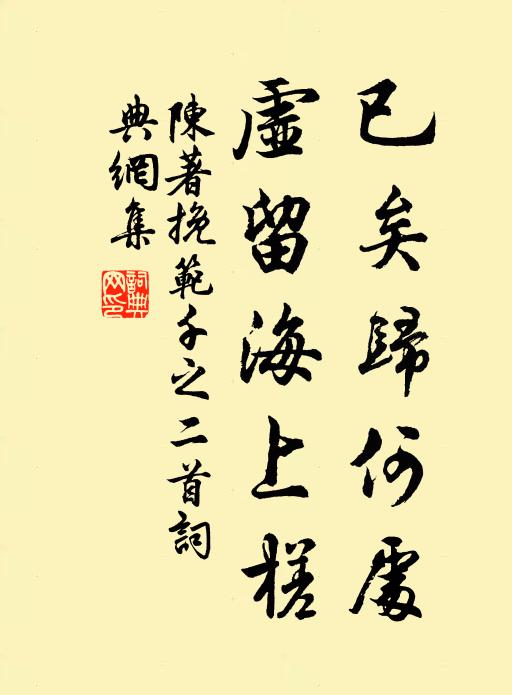 已矣歸何處
虛留海上槎
陳著挽範千之二首詞
典網集
詞典網印